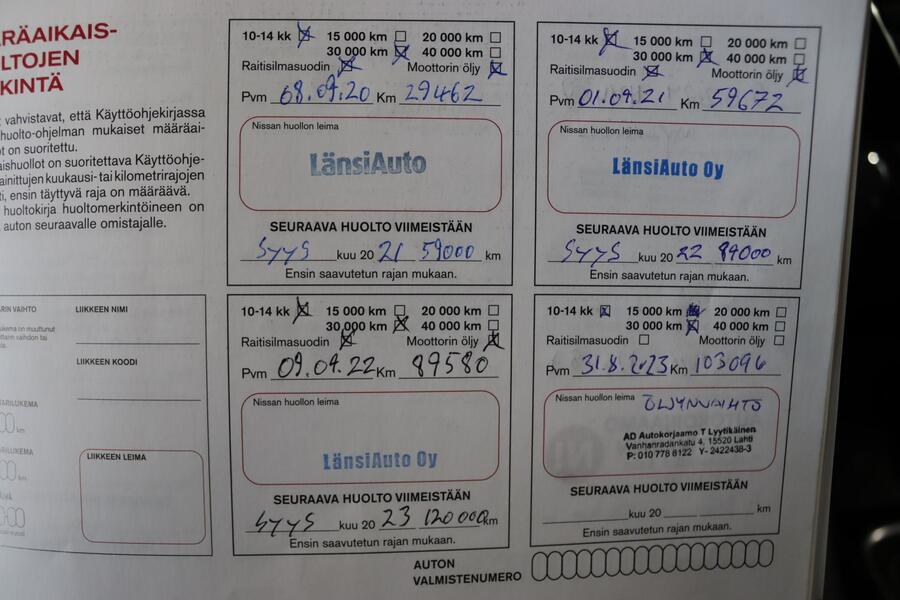 RÄAIKAIS-
LTOJEN
KINTÄ
vahvistavat, että Käyttöohjekirjassa
huolto-ohjelman mukaiset määräai-
t on suoritettu.
aishuollot on suoritettava Käyttöohje-
ainittujen kuukausi- tai kilometrirajojen
ti, ensin täyttyvä raja on määräävä.
huoltokirja huoltomerkintöineen on
auton seuraavalle omistajalle.
10-14 kk 15 000 km 20 000 km
30 000 km 40 000 km
Raitisilmasuodin Moottorin öljy
Pvm 08.09.20 Km 29462
Nissan huollon leima
LänsiAuto
SEURAAVA HUOLTO VIIMEISTÄÄN
SYYS kuu 20 21 59000 km
Ensin saavutetun rajan mukaan.
10-14 kk 15 000 km 20 000 km
30 000 km 40 000 km
Raitisilmasuodin Moottorin öljy
Pvm 01.09.21 Km 59672
Nissan huollon leima
LänsiAuto Oy
SEURAAVA HUOLTO VIIMEISTÄÄN
SYYS kuu 20 22 89000 km
Ensin saavutetun rajan mukaan.
ARIN VAIHTO LIIKKEEN NIMI
LIIKKEEN KOODI
km
km
LIIKKEEN LEIMA
10-14 kk 15 000 km 20 000 km
30 000 km 40 000 km
Raitisilmasuodin Moottorin öljy
Pvm 09.09.22 Km 89580
Nissan huollon leima
LänsiAuto Oy
SEURAAVA HUOLTO VIIMEISTÄÄN
SYYS kuu 20 23 120000 km
Ensin saavutetun rajan mukaan.
10-14 kk 15 000 km 20 000 km
30 000 km 40 000 km
Raitisilmasuodin Moottorin öljy
Pvm 31.8.2023 Km 103096
Nissan huollon leima ÖLJYNVAIHTO
AD Autokorjaamo T Lyytikäinen
Vanhanradankatu 4, 15520 Lahti
P: 010 778 8122 Y- 2422438-3
SEURAAVA HUOLTO VIIMEISTÄÄN
kuu 20 km
Ensin saavutetun rajan mukaan.
AUTON
VALMISTENUMERO